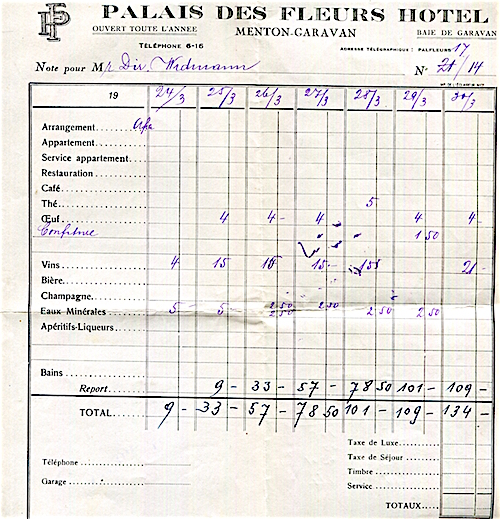 PALAIS DES FLEURS HOTEL
OUVERT TOUTE L'ANNÉE MENTON-GARAVAN BAIE DE GARAVAN
TÉLÉPHONE 6-16 ADRESSE TÉLÉGRAPHIQUE : PALFLEURS 17
Note pour Mr Dir. Widmann N° 21/14
19 24/3 25/3 26/3 27/3 28/3 29/3 30/3
Arrangement
Appartement
Service appartement
Restauration
Café
Thé 5
Œuf 4 4 - 4 4 4 -
Confiture 1 50
Vins 4 15 15 15 - 15 21 -
Bière
Champagne
Eaux Minérales 5 5 2 50 2 50 2 50 2 50
Apéritifs-Liqueurs
Bains
Report 9 - 33 - 57 - 78 50 101 - 109 -
TOTAL 9 - 33 - 57 - 78 50 101 - 109 - 134 -
Taxe de Luxe
Téléphone Taxe de Séjour
Timbre
Garage Service
TOTAUX